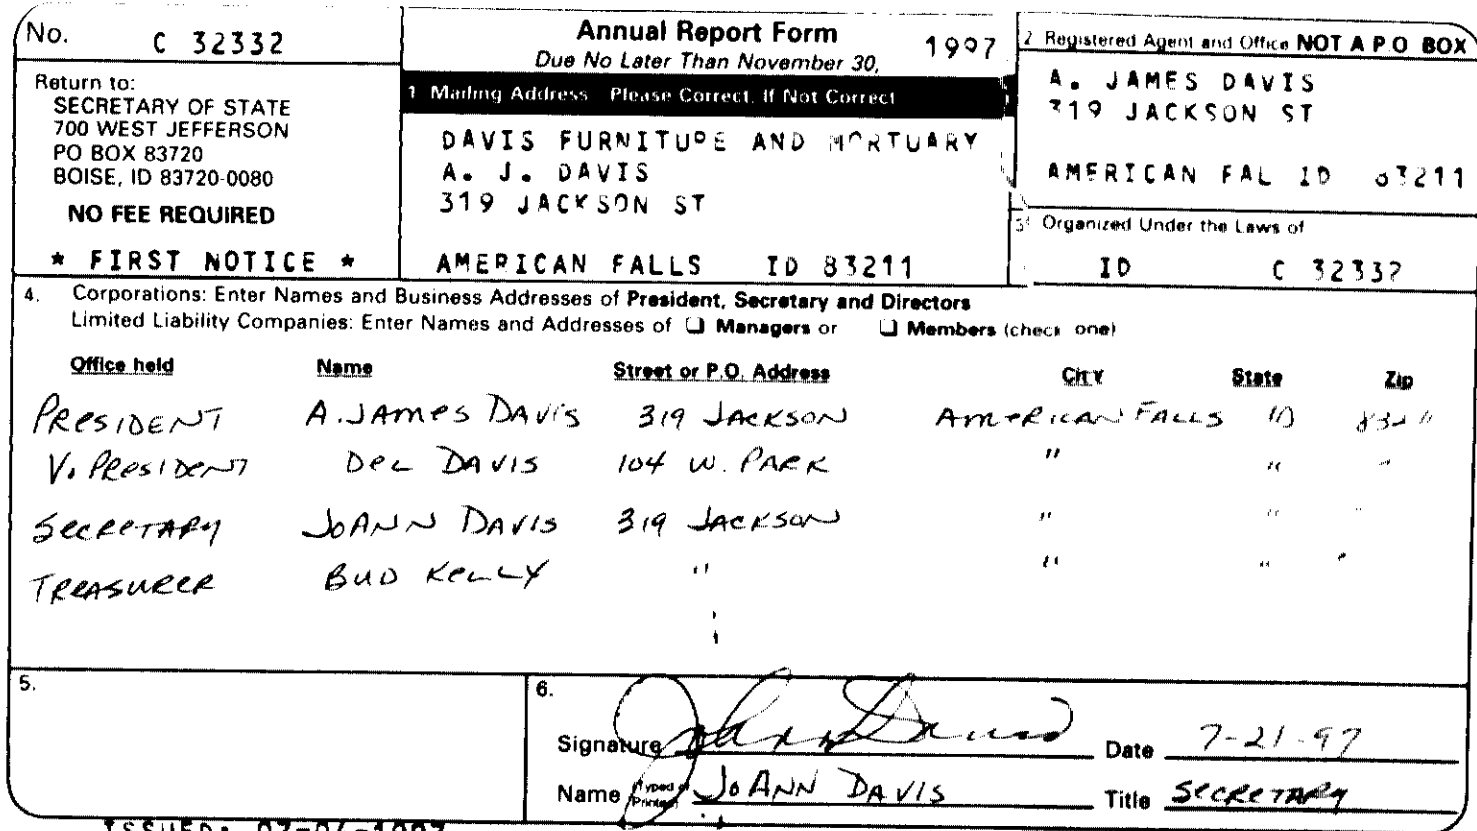 No. C 32332
Return to:
SECRETARY OF STATE
700 WEST JEFFERSON
PO BOX 83720
BOISE, ID 83720-0080
NO FEE REQUIRED
* FIRST NOTICE *
Annual Report Form 1997
Due No Later Than November 30,
1 Mailing Address Please Correct, If Not Correct
DAVIS FURNITURE AND MORTUARY
A. J. DAVIS
319 JACKSON ST
AMERICAN FALLS ID 83211
2 Registered Agent and Office NOT A P.O BOX
A. JAMES DAVIS
319 JACKSON ST
AMERICAN FAL ID 83211
3 Organized Under the Laws of
ID C 32332
4. Corporations: Enter Names and Business Addresses of President, Secretary and Directors
Limited Liability Companies: Enter Names and Addresses of ☐ Managers or ☐ Members (check one)
Office held Name Street or P.O. Address City State Zip
PRESIDENT A. JAMES DAVIS 319 JACKSON AMERICAN FALLS ID 83211
V. PRESIDENT DEL DAVIS 104 W. PARK " " "
SECRETARY JOANN DAVIS 319 JACKSON " " "
TREASURER BUD KELLY " " " "
5.
6.
Signature JoAnn Davis Date 7-21-97
Name (Typed or Printed) JOANN DAVIS Title SECRETARY